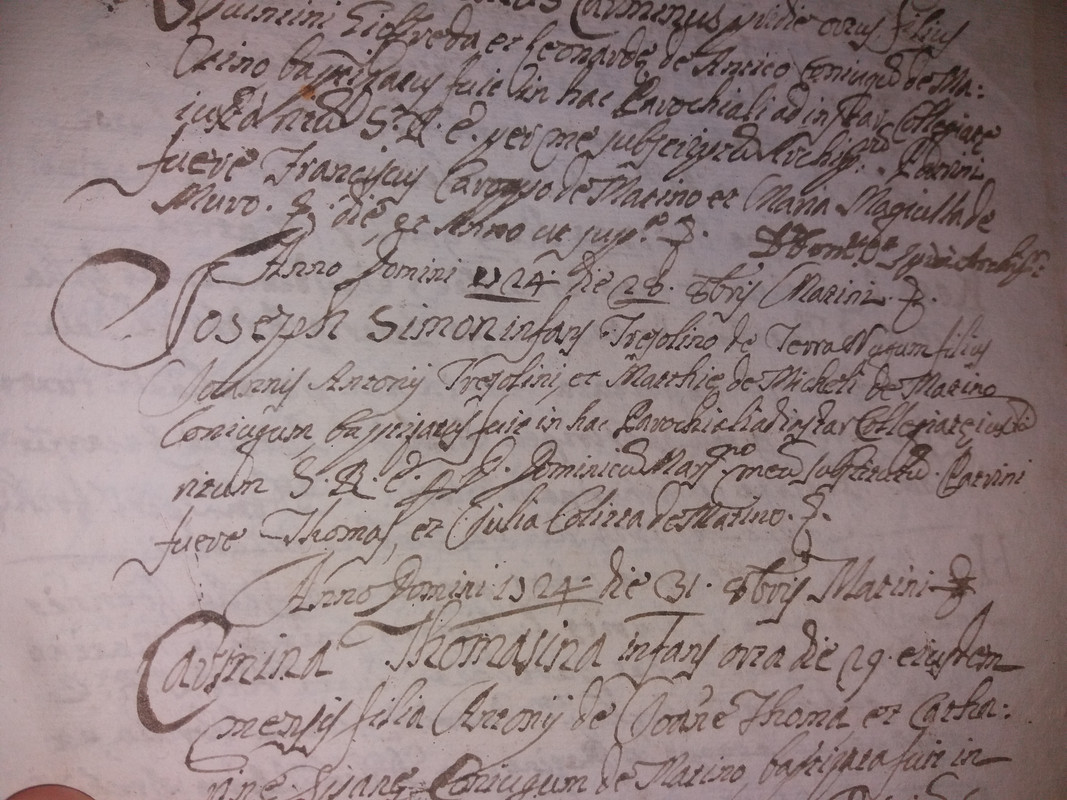 Carminus pridie ortus filius
Quintini Gioffreda et Leonardę de Antico Coniugū de Ma:
tino baptizatus fuit in hac Parochiali ad instar Collegiatę
iuxtà ritū S. R. E. per me subscriptū Archipr̄ū. Patrini
fuere Franciscus Caroppo de Matino et Maria Magiulla de
Muro. die, et Anno ut sup.ª
Anno Domini 1724 die 28. 8bris Matini.
Joseph Simon infans Tresolino de Terra filius
Joannis Antonij Tresolini, et Matthię de Micheli de Matino
Coniugum, baptizatus fuit in hac Parochiali ad instar Collegiatę iuxtà
ritum S. R. E. p D. Dominicū meū substitutū. Patrini
fuere Thomas, et Julia Colizza de Matino.
Anno Domini 1724 die 31. 8bris Matini
Carmina Thomasina infans orta die 29. eiusdem
mensis filia Antonij de Joañe Thoma et Catha:
rinę Coniugum de Matino baptizata fuit in